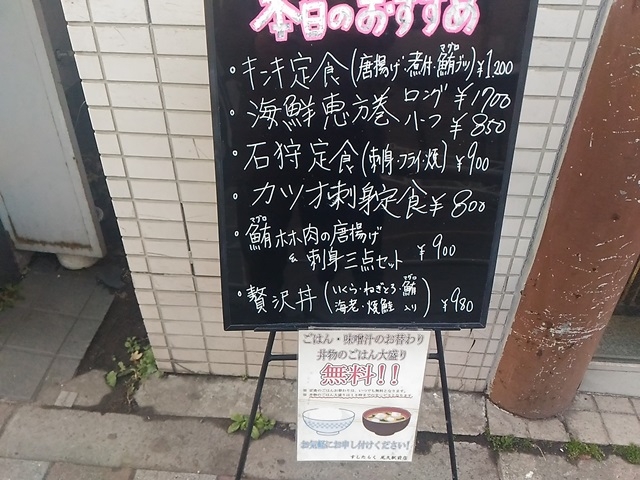 本日のおすすめ
・キンキ定食(唐揚げ・煮付・鮪ブツ)¥1,200
マグロ
・海鮮恵方巻 ロング ¥1700
ハーフ ¥850
・石狩定食(刺身・フライ・焼)¥900
・カツオ刺身定食¥800
マグロ
・鮪ホホ肉の唐揚げ
& 刺身三点セット ¥900
・贅沢丼(いくら・ねぎとろ・鮪
マグロ
海老・焼鮭 入り)¥980
ごはん・味噌汁のお替わり
丼物のごはん大盛り
無料!!
お気軽にお申し付けください!